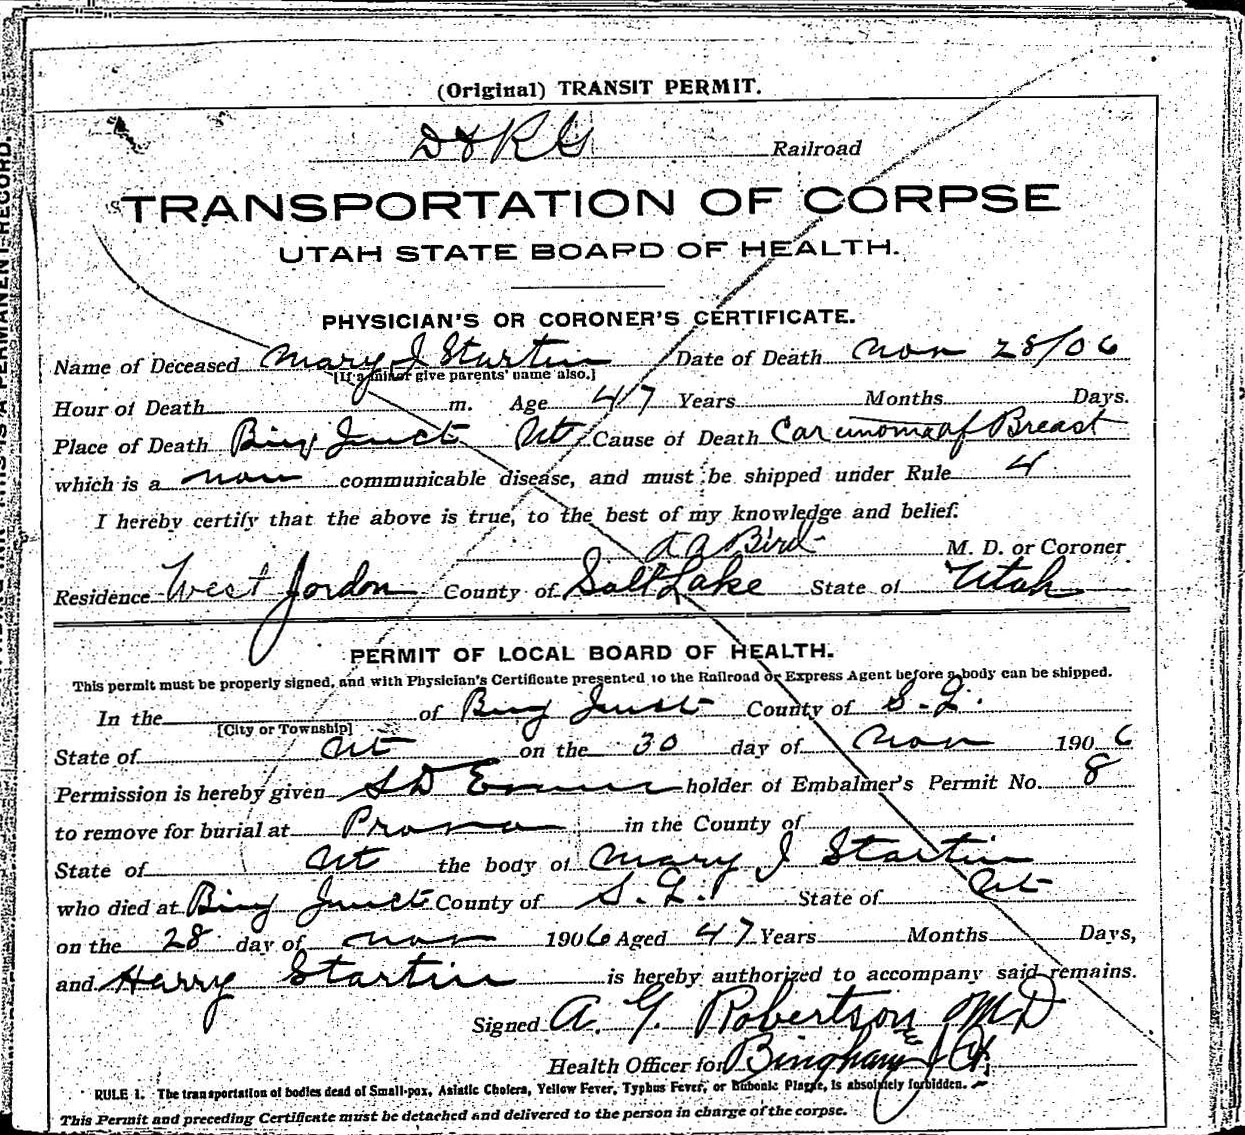 (Original) TRANSIT PERMIT.
D & R G Railroad
TRANSPORTATION OF CORPSE
UTAH STATE BOARD OF HEALTH.
PHYSICIAN'S OR CORONER'S CERTIFICATE.
Name of Deceased Mary J Startin Date of Death Nov 28/06
[If a minor give parents' name also.]
Hour of Death m. Age 47 Years Months Days.
Place of Death Bing Junct Ut Cause of Death Carcinoma of Breast
which is a non communicable disease, and must be shipped under Rule 4
I hereby certify that the above is true, to the best of my knowledge and belief.
Bird M. D. or Coroner
Residence West Jordon County of Salt Lake State of Utah
PERMIT OF LOCAL BOARD OF HEALTH.
This permit must be properly signed, and with Physician's Certificate presented to the Railroad or Express Agent before a body can be shipped.
In the of Bing Junct County of S. L.
[City or Township]
State of Ut on the 30 day of Nov 1906
Permission is hereby given S D holder of Embalmer's Permit No. 8
to remove for burial at Provo in the County of
State of Ut the body of Mary J Startin
who died at Bing Junct County of S. L. State of Ut
on the 28 day of Nov 1906 Aged 47 Years Months Days,
and Harry Startin is hereby authorized to accompany said remains.
Signed A. G. Robertson MD
Health Officer for Bingham
RULE 1. The transportation of bodies dead of Small-pox, Asiatic Cholera, Yellow Fever, Typhus Fever, or Bubonic Plague, is absolutely forbidden.
This Permit and preceding Certificate must be detached and delivered to the person in charge of the corpse.